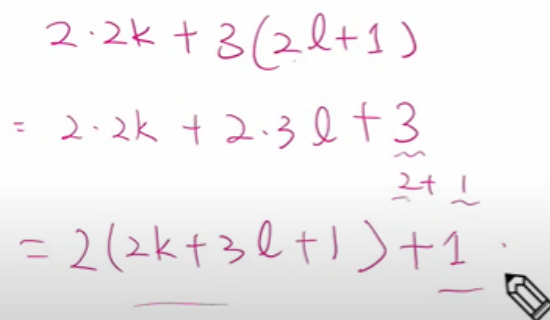 2·2k + 3(2l+1)
= 2·2k + 2·3l + 3
2+1
= 2(2k+3l+1)+1